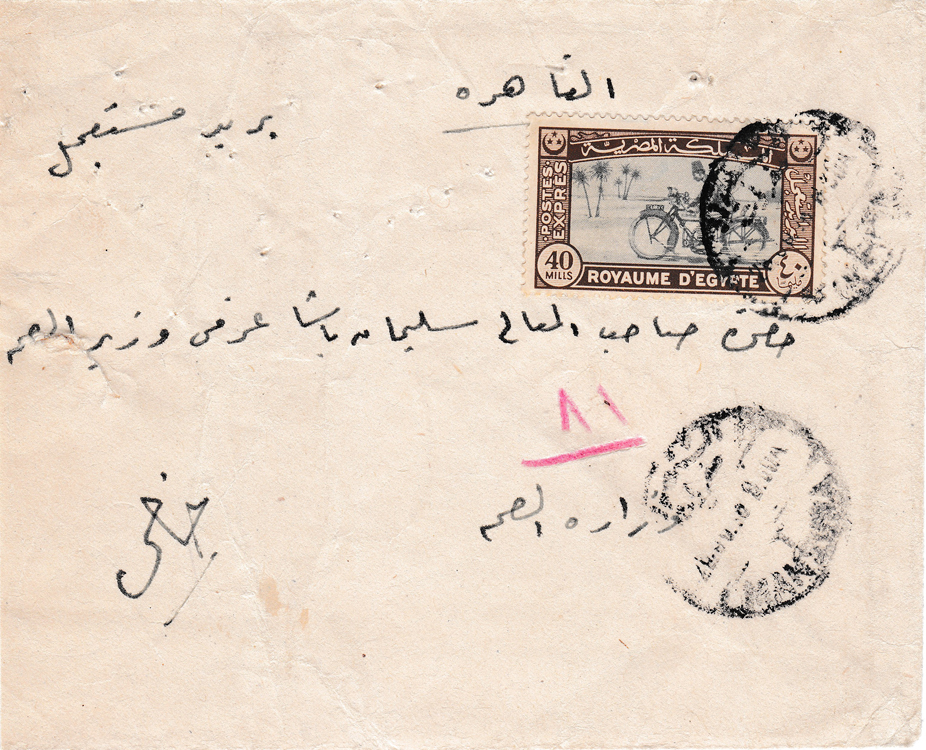 القاهره
بريد مستعجل
المملكة المصرية
POSTES
EXPRÈS
40
MILLS
٤٠
ROYAUME D'EGYPTE
حضرة صاحب المعالى سليمان باشا عرفى وزير الصحه
٨١
وزاره الصحه